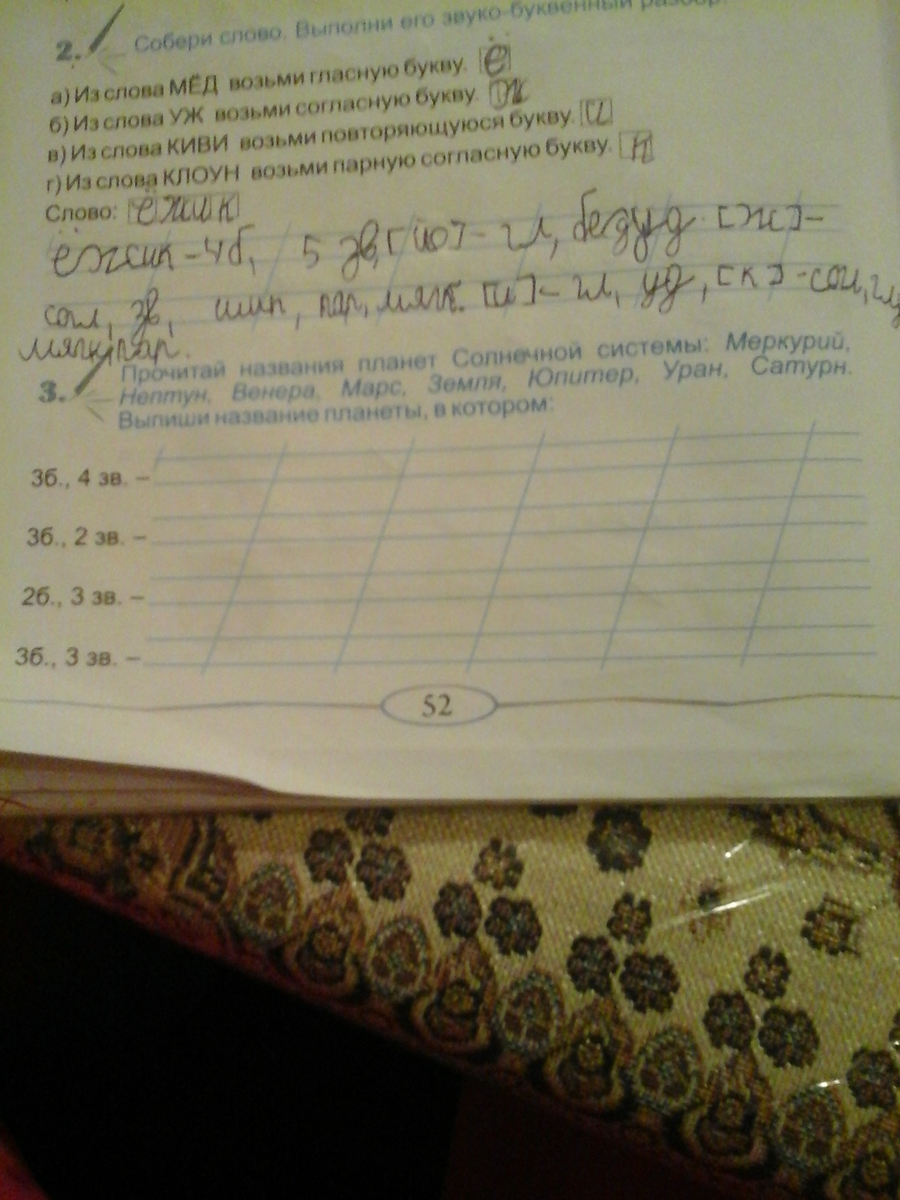 2. Собери слово. Выполни его звуко-буквенный разбор.
а) Из слова МЁД возьми гласную букву. ё
б) Из слова УЖ возьми согласную букву. ж
в) Из слова КИВИ возьми повторяющуюся букву. и
г) Из слова КЛОУН возьми парную согласную букву. к
Слово: ёжик
ёжик - 4 б, 5 зв, [йо] - гл, безуд [ж] -
согл, зв, шип, пар, мягк. [и] - гл, уд, [к] - согл, гл,
мягк, пар.
3. Прочитай названия планет Солнечной системы: Меркурий,
Нептун, Венера, Марс, Земля, Юпитер, Уран, Сатурн.
Выпиши название планеты, в котором:
3б., 4 зв. –
3б., 2 зв. –
2б., 3 зв. –
3б., 3 зв. –
52